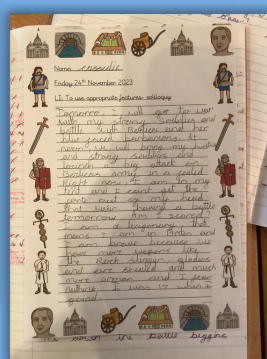 Name: Cassidie
Friday 24th November 2023
LI: To use appropriate features- soliloquy
Tomorrow, I will go to war
with my strong soldiers and
battle with Boudica and her
blue faced barbarians. At
noon we will bring my best
and strong soldiers and
launch an attack on
Boudicas army in a
Right now I am in my
tent and I cant get the
out of my head
that were having a battle
tomorrow. Am I scared?
I am a legionary this
means I am in Britain and
I am brave because we
have more weapons like
the Rock slinger, gladius
and are skilled and much
more armor and I fear
nothing. I was 17 when I
joined
when the battle beggins